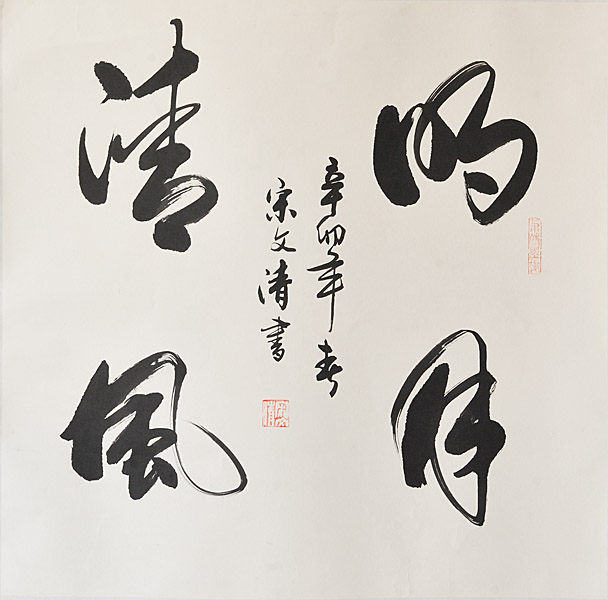 明月
辛卯年春
宋文清書
清風